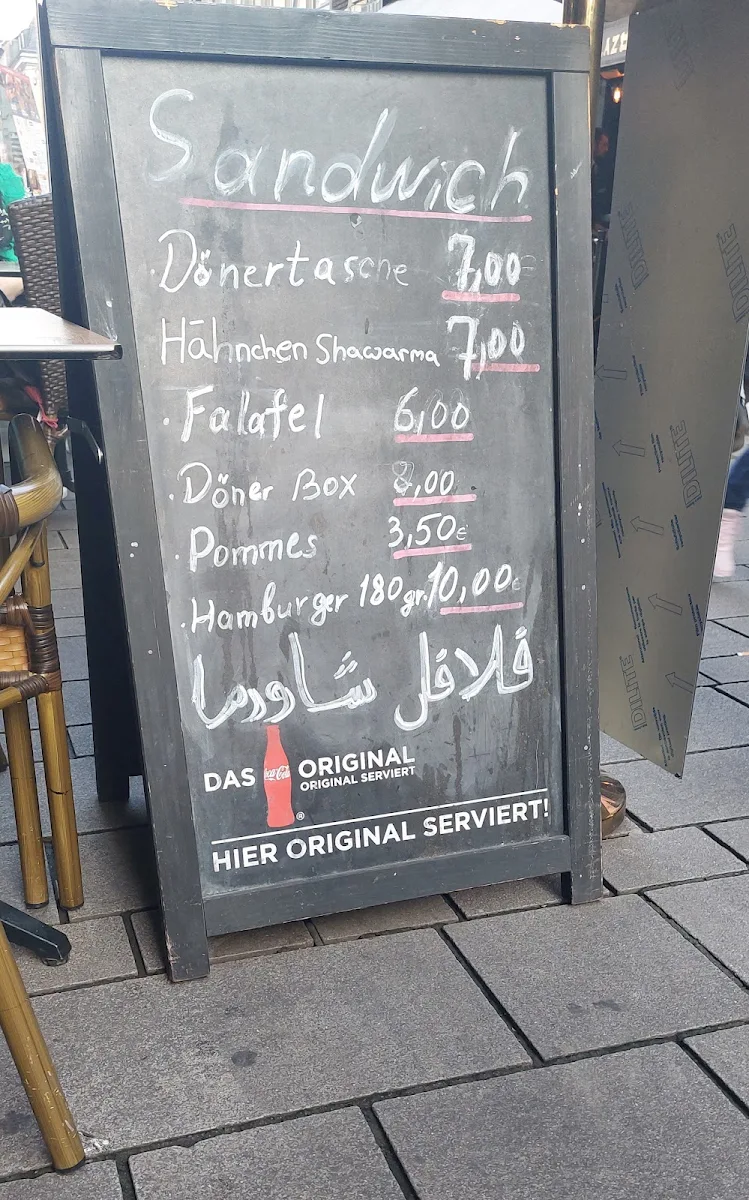 Sandwich
Dönertasche 7,00
Hähnchen Shawarma 7,00
· Falafel 6,00
· Döner Box 8,00
· Pommes 3,50€
· Hamburger 180 gr. 10,00€
فلافل شاورما
DAS Coca-Cola ORIGINAL
ORIGINAL SERVIERT
®
HIER ORIGINAL SERVIERT!
DILITE
DILITE
DILITE
DILITE
DILITE